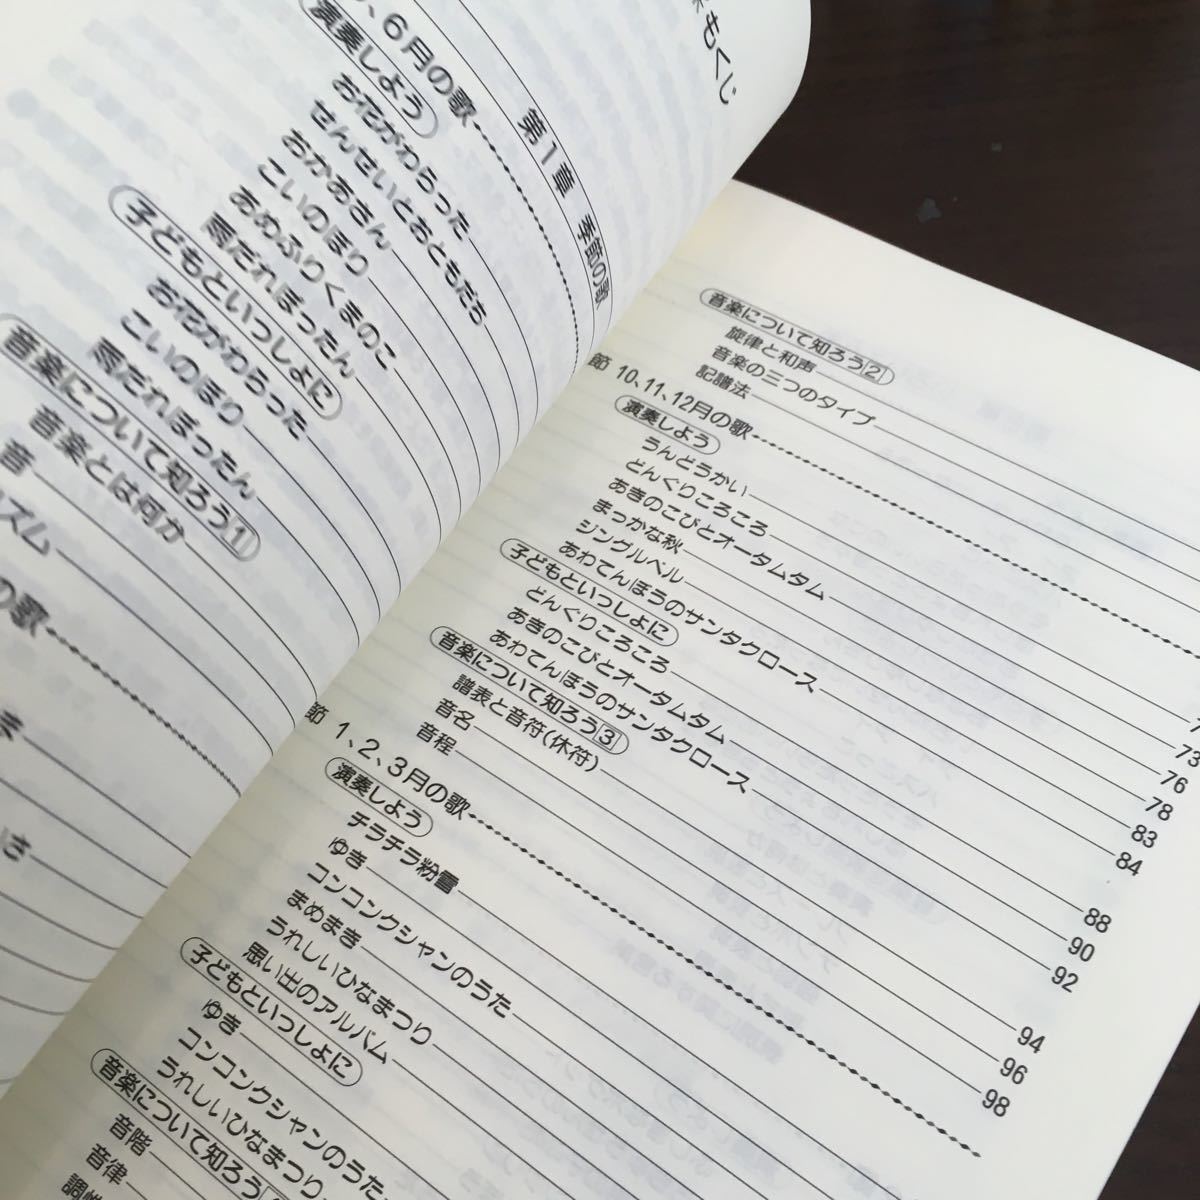 もくじ
第1章 季節の歌
6月の歌
演奏しよう
お花がわらった
せんせいとおともだち
おかあさん
こいのぼり
あめふりくまのこ
雨だれぽったん
子どもといっしょに
お花がわらった
こいのぼり
雨だれぽったん
音楽について知ろう1
音楽とは何か
音
ズム
の歌
音楽について知ろう2
旋律と和声
音楽の三つのタイプ
記譜法
節 10、11、12月の歌
演奏しよう
うんどうかい
どんぐりころころ 73
あきのこびとオータムタム 76
まっかな秋 78
ジングルベル 83
あわてんぼうのサンタクロース 84
子どもといっしょに
どんぐりころころ 88
あきのこびとオータムタム 90
あわてんぼうのサンタクロース 92
音楽について知ろう3
譜表と音符(休符) 94
音名 96
音程 98
節 1、2、3月の歌
演奏しよう
チラチラ粉雪
ゆき
コンコンクシャンのうた
まめまき
うれしいひなまつり
思い出のアルバム
子どもといっしょに
ゆき
コンコンクシャンのうた
うれしいひなまつり
音楽について知ろう
音階
音律
調性